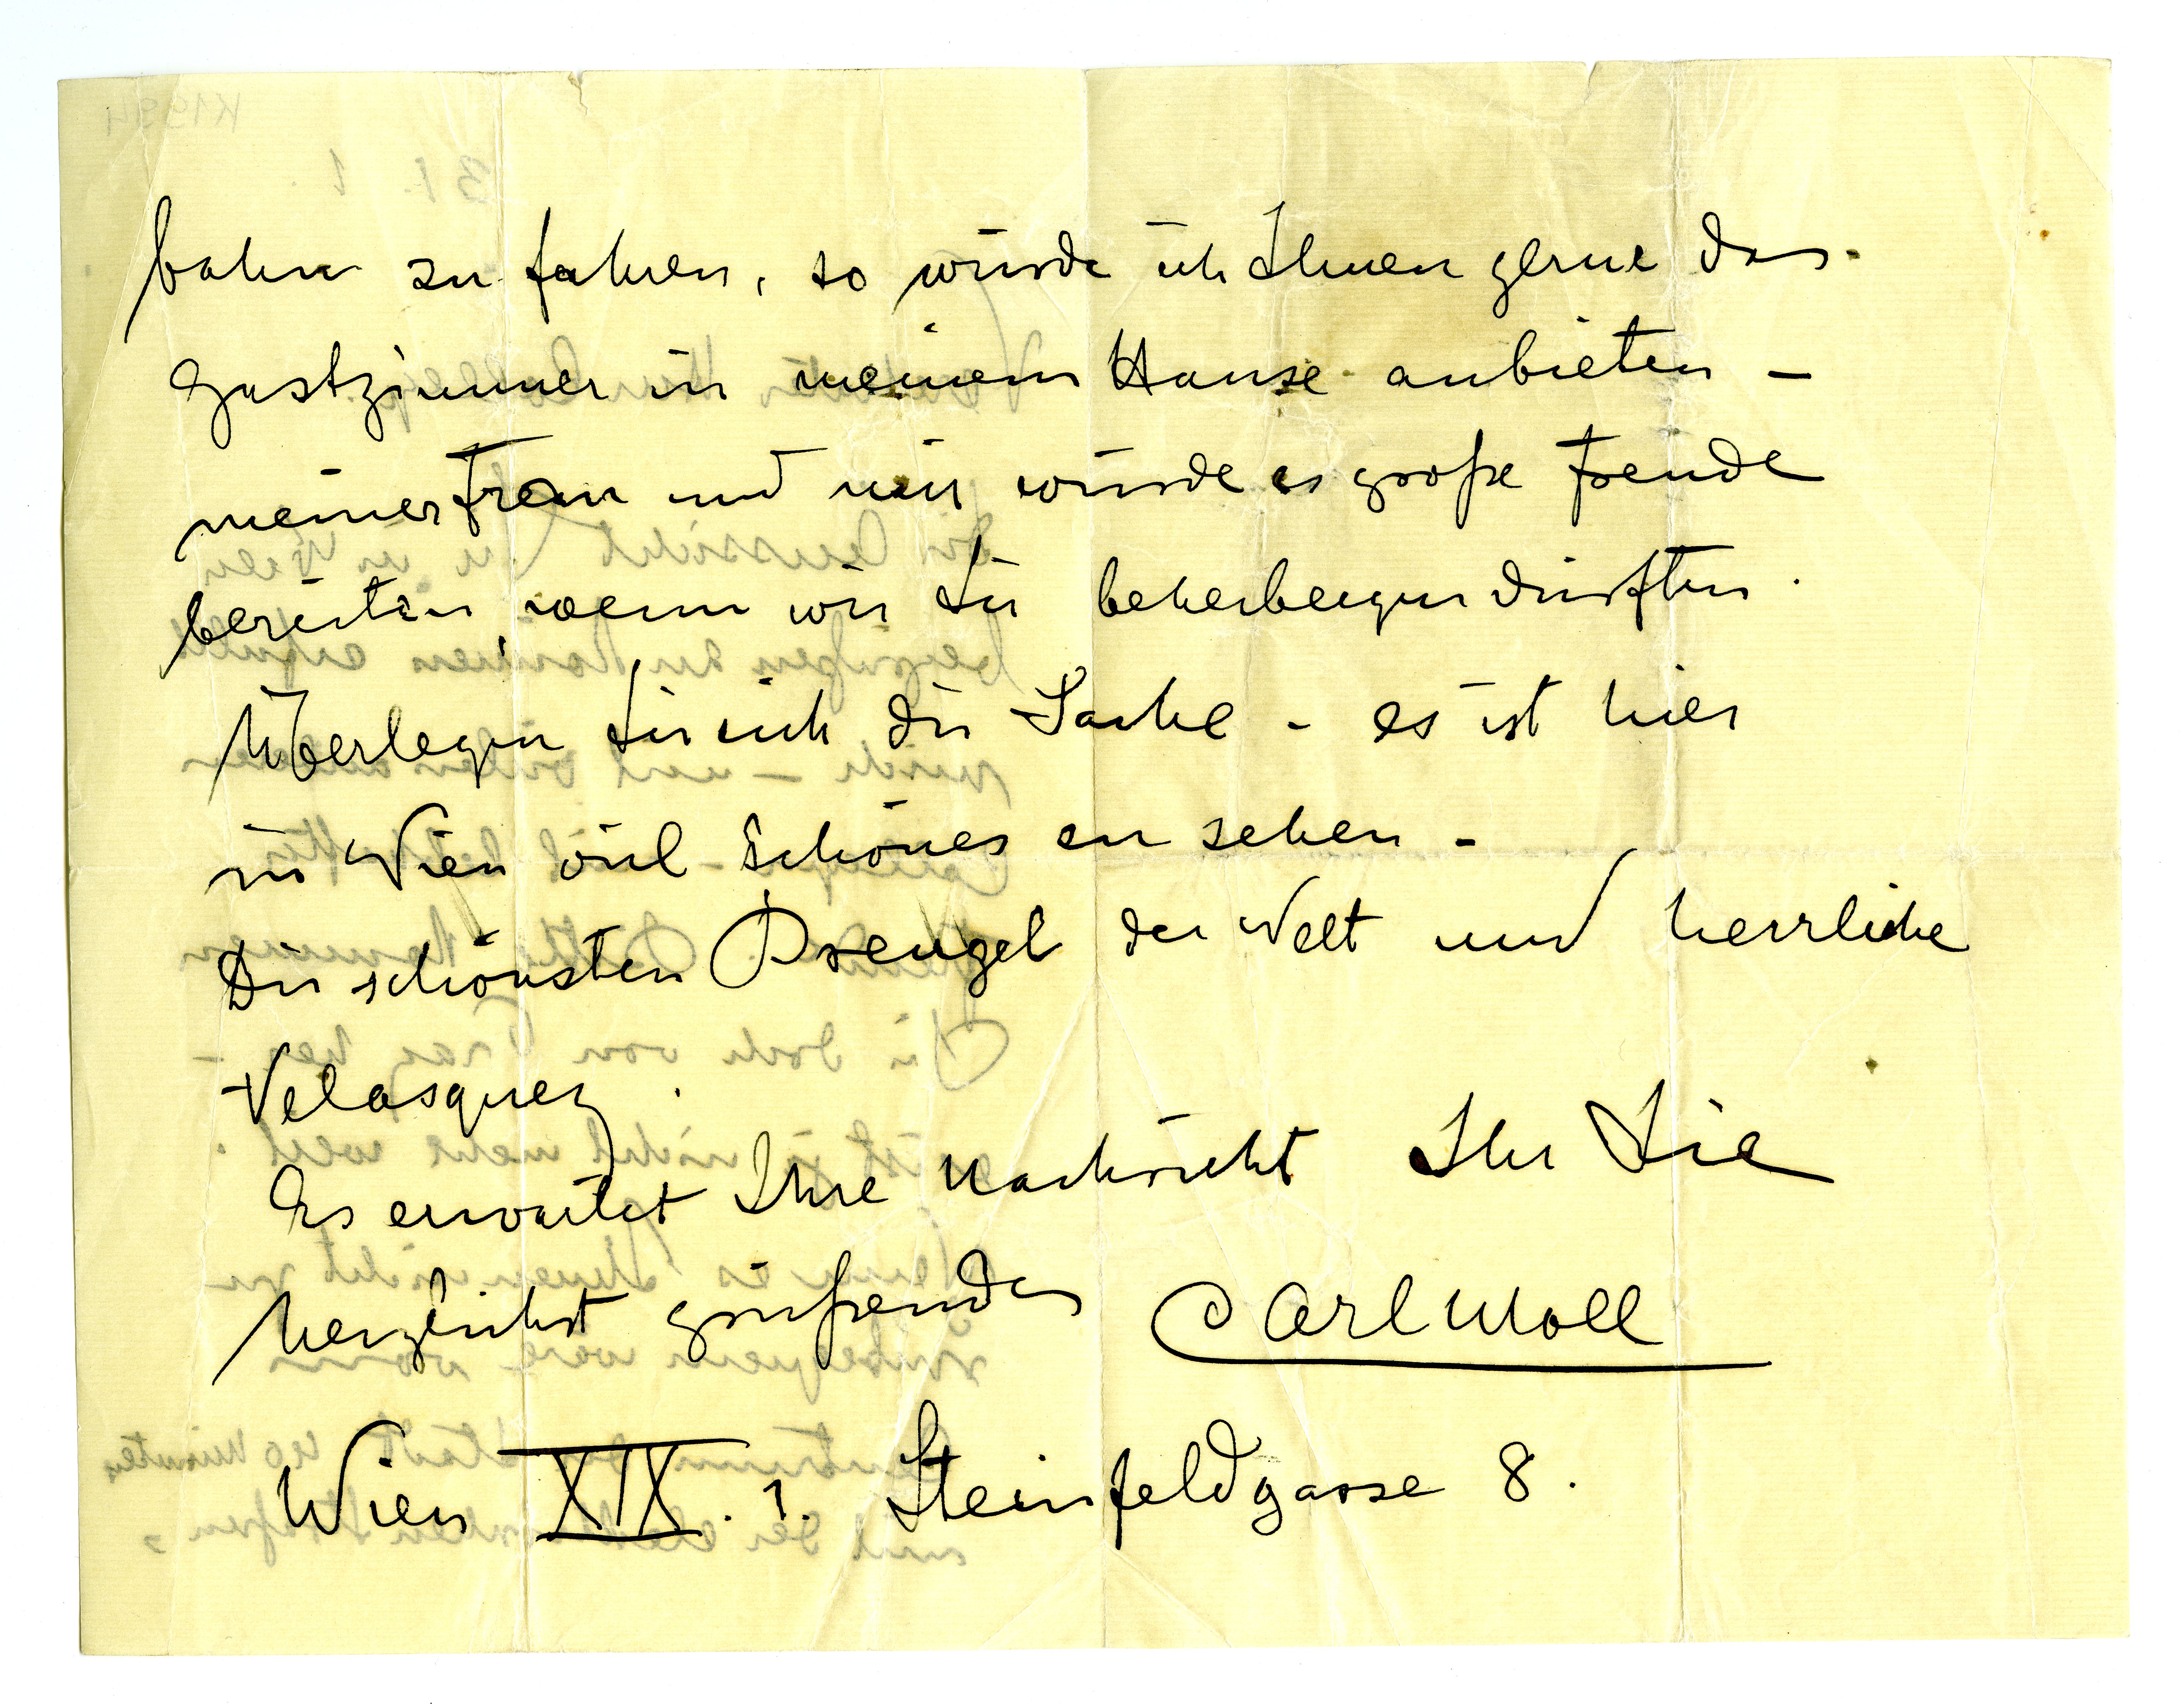 bahn zu fahren, so würde ich Ihnen gerne das
Gastzimmer in meinem Hause anbieten –
meiner Frau und mir würde es große Freude
bereiten, wenn wir Sie beherbergen dürften.
Überlegen Sie sich die Sache – es ist hier
in Wien viel Schönes zu sehen –
Die schönsten Breugel der Welt und herrliche
Velasquez.
Es erwartet Ihre Nachricht Ihr Sie
herzlichst grüßender Carl Moll
Wien XIX. 1. Steinfeldgasse 8.